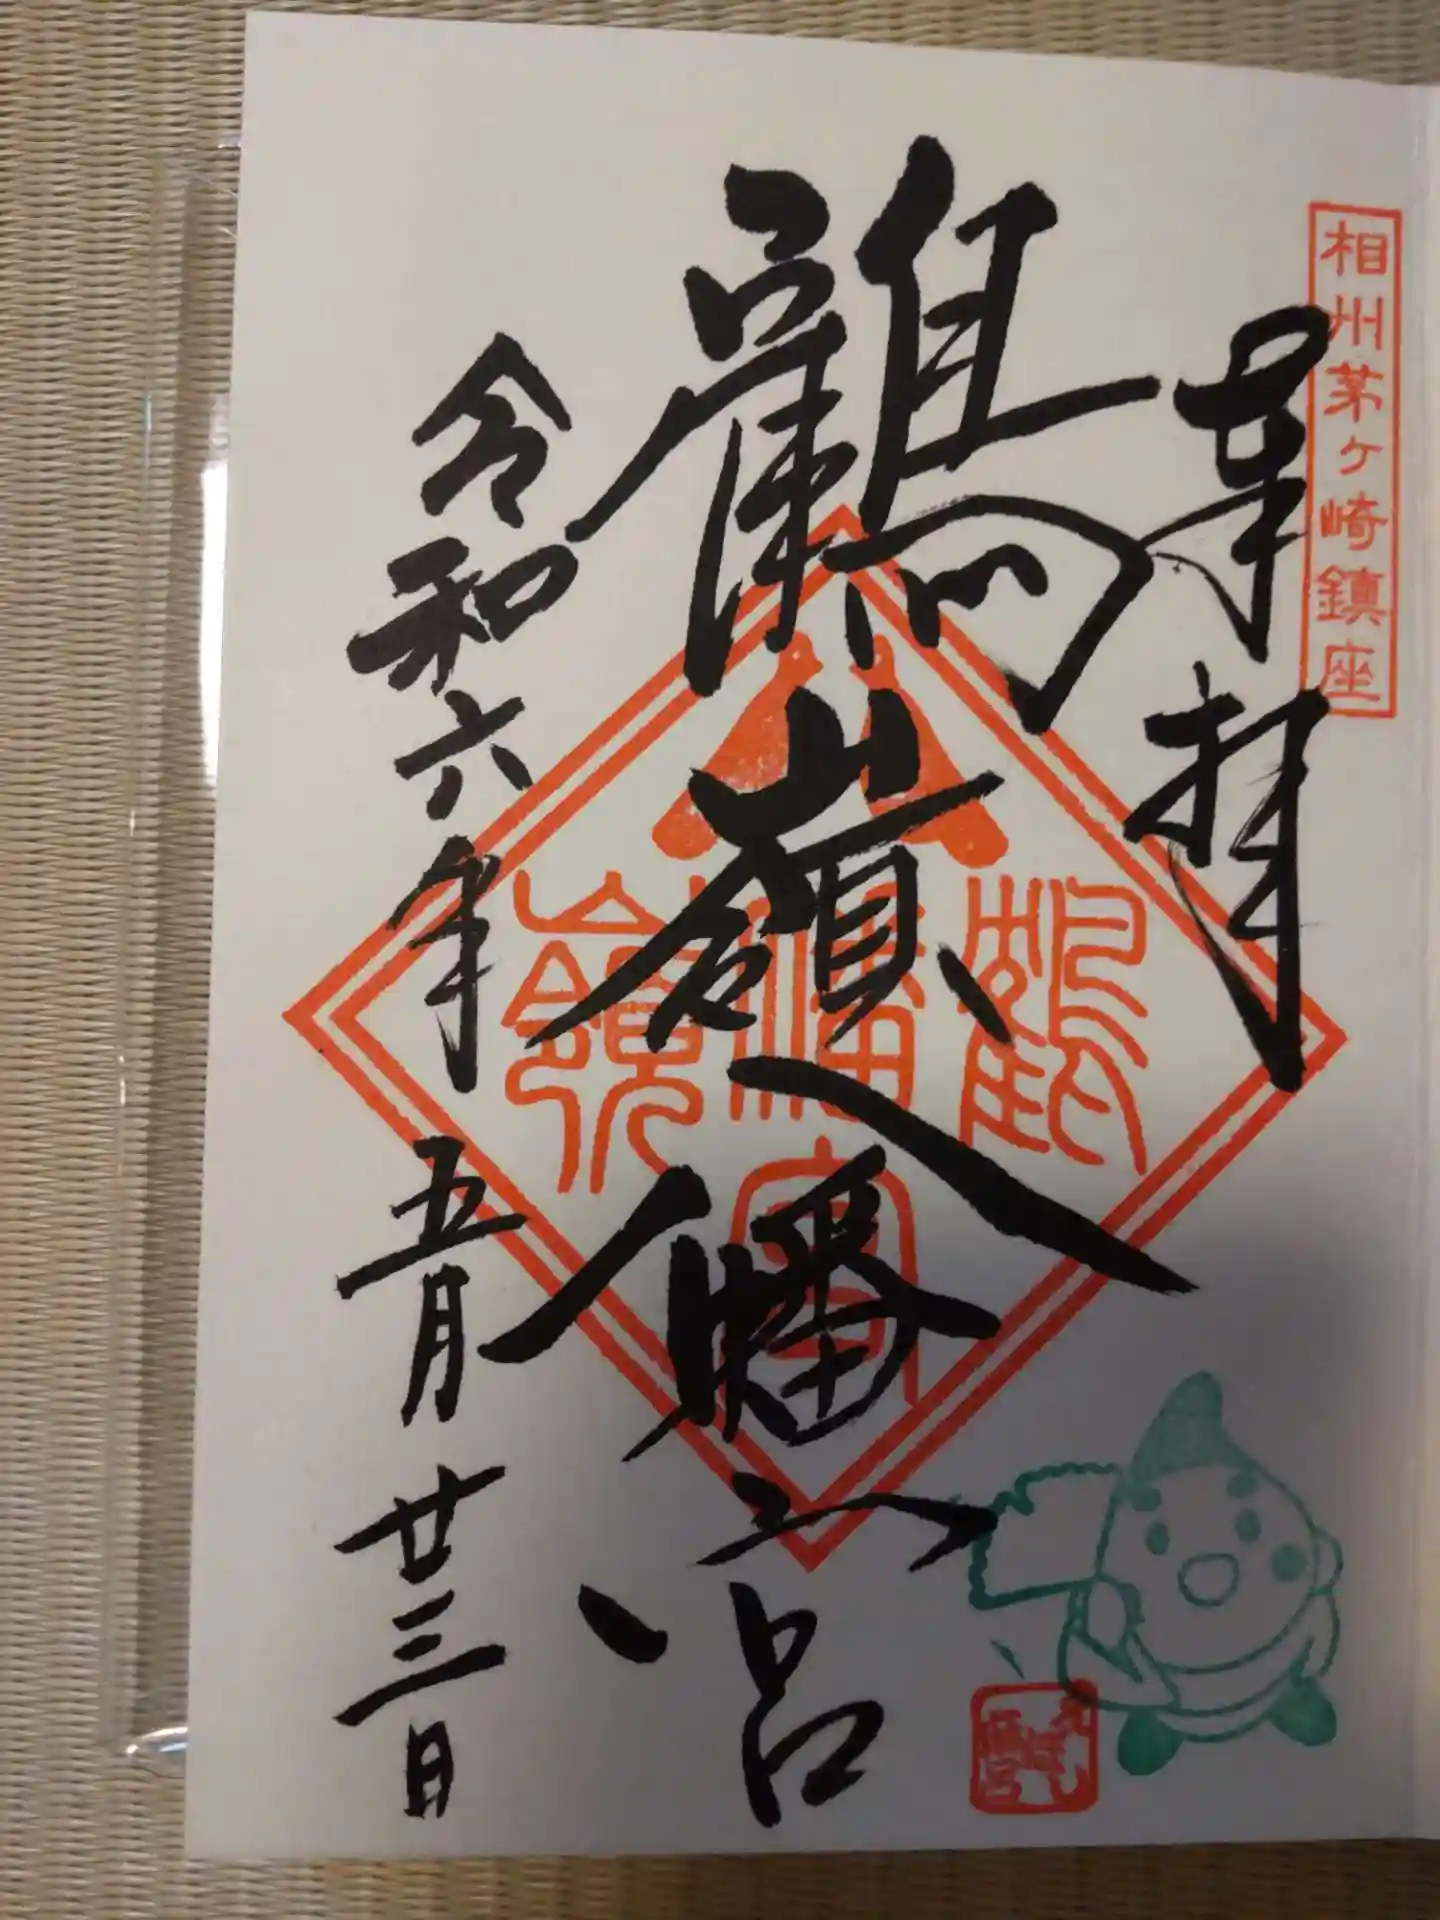 相州茅ヶ崎鎮座
奉拝
鶴嶺八幡宮
令和六年五月廿三日
鶴
幡
宮
嶺